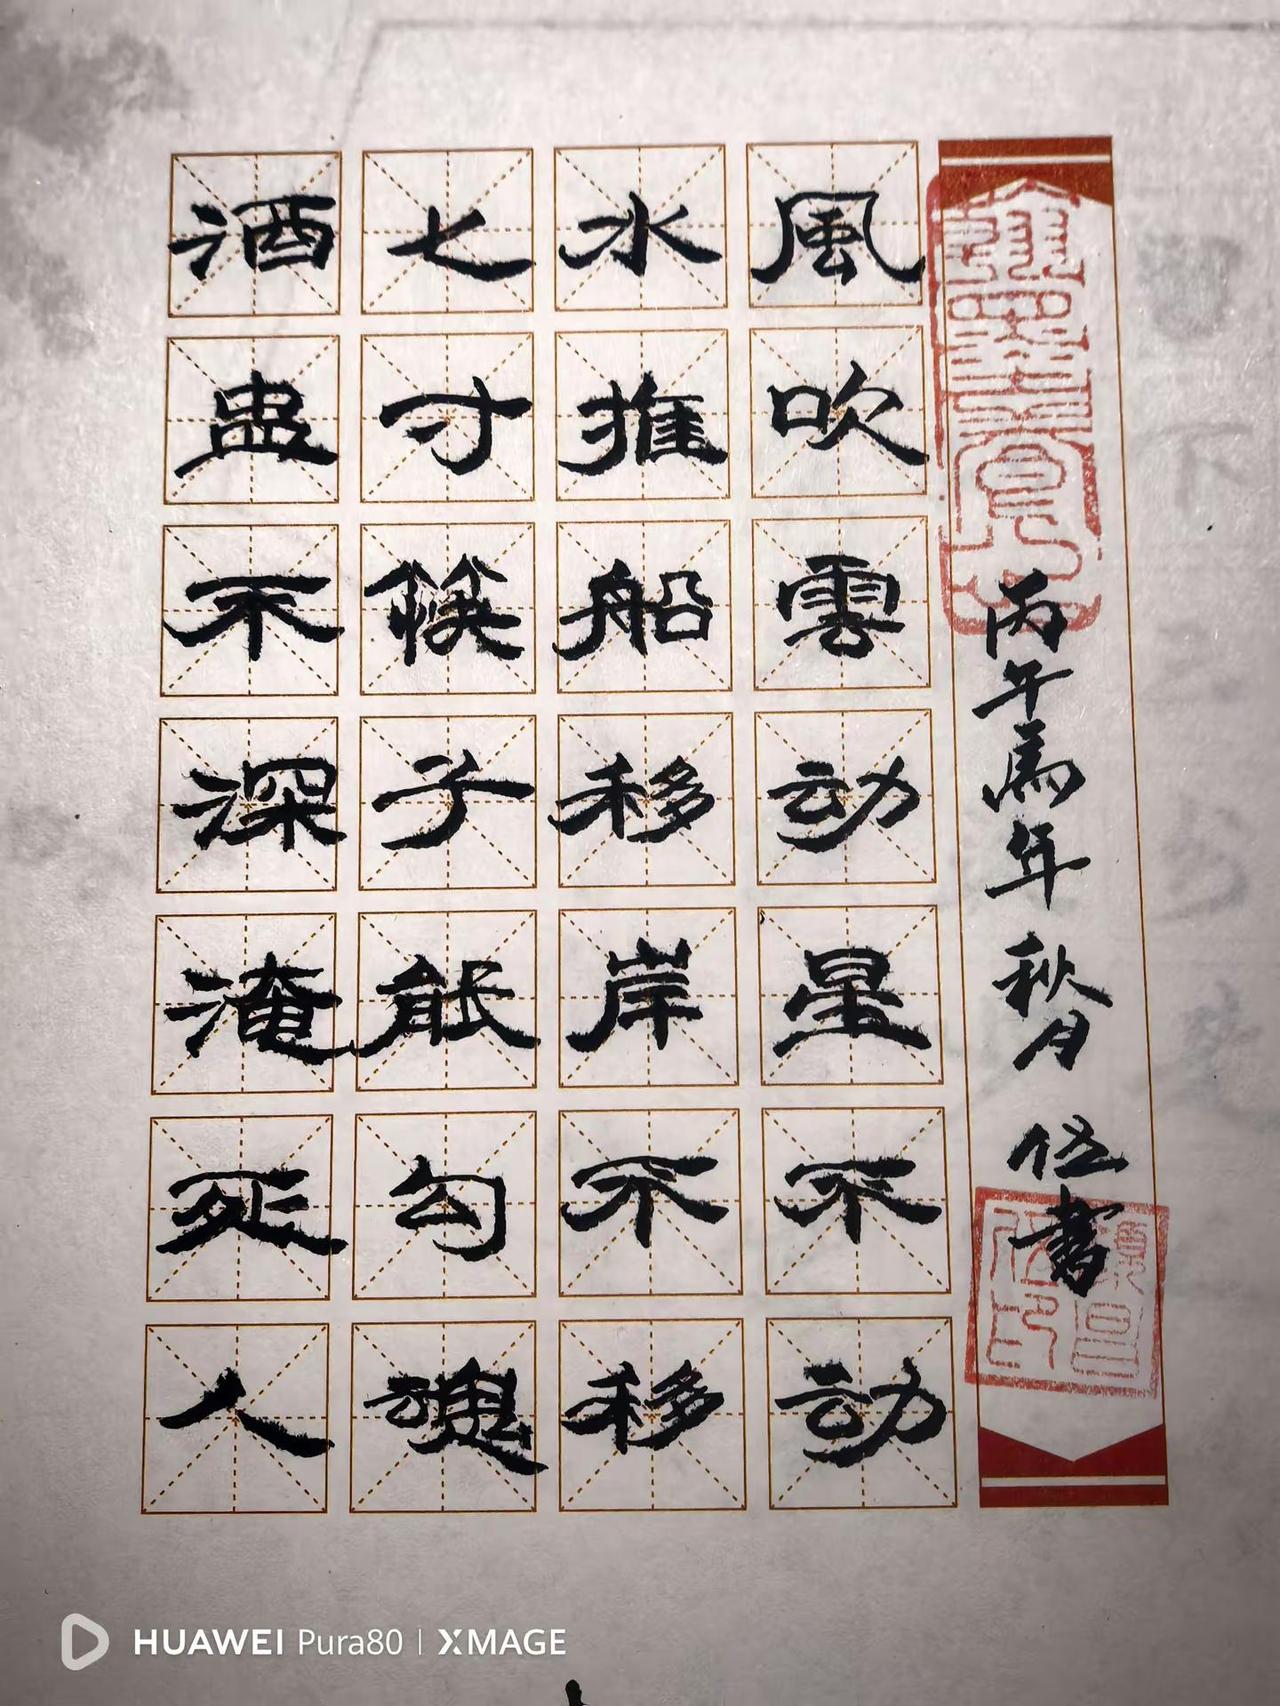 風吹雲动星不动
水推船移岸不移
七寸筷子能勾魂
酒盅不深淹死人
丙午馬年 秋月 伍書
HUAWEI Pura80 | XMAGE